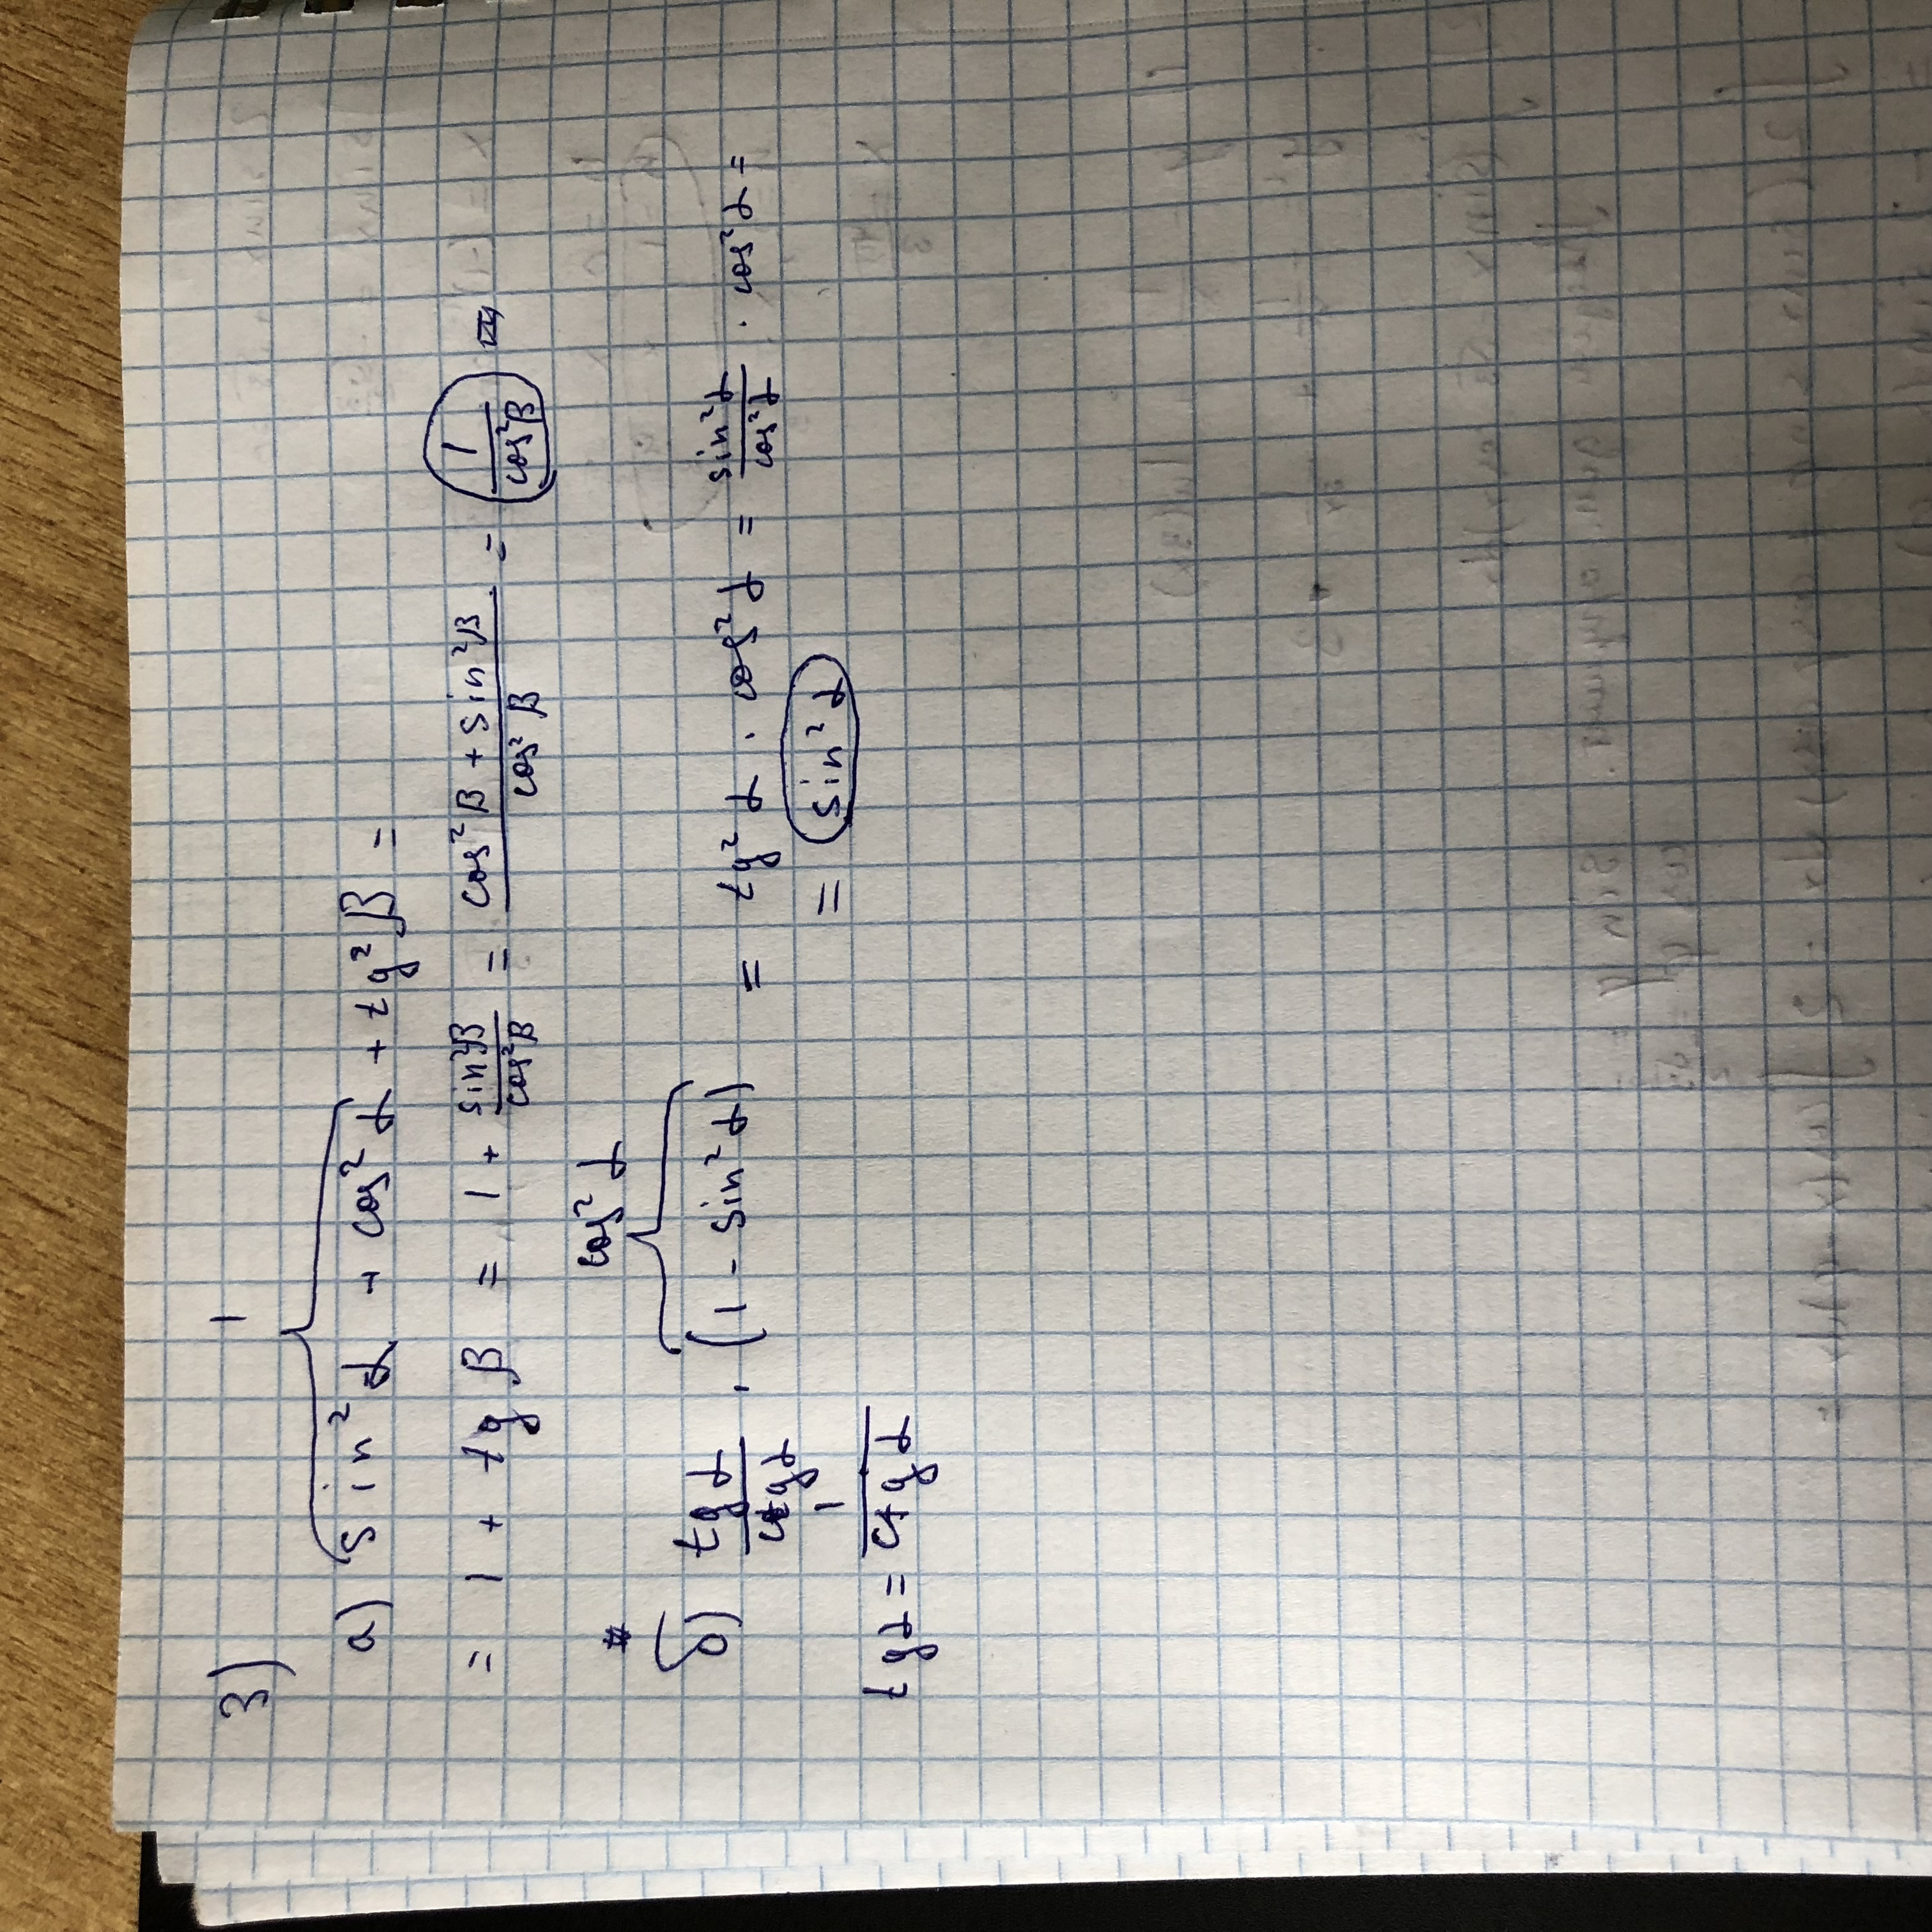 3)
1
а) sin²α + cos²α + tg²β =
= 1 + tgβ = 1 + sin²β/cos²β = (cos²β + sin²β)/cos²β = 1/cos²β
cos²α
б) tgα/ctgα · (1 - sin²α) = tg²α · cos²α = sin²α/cos²α · cos²α =
= sin²α
tgα = 1/ctgα